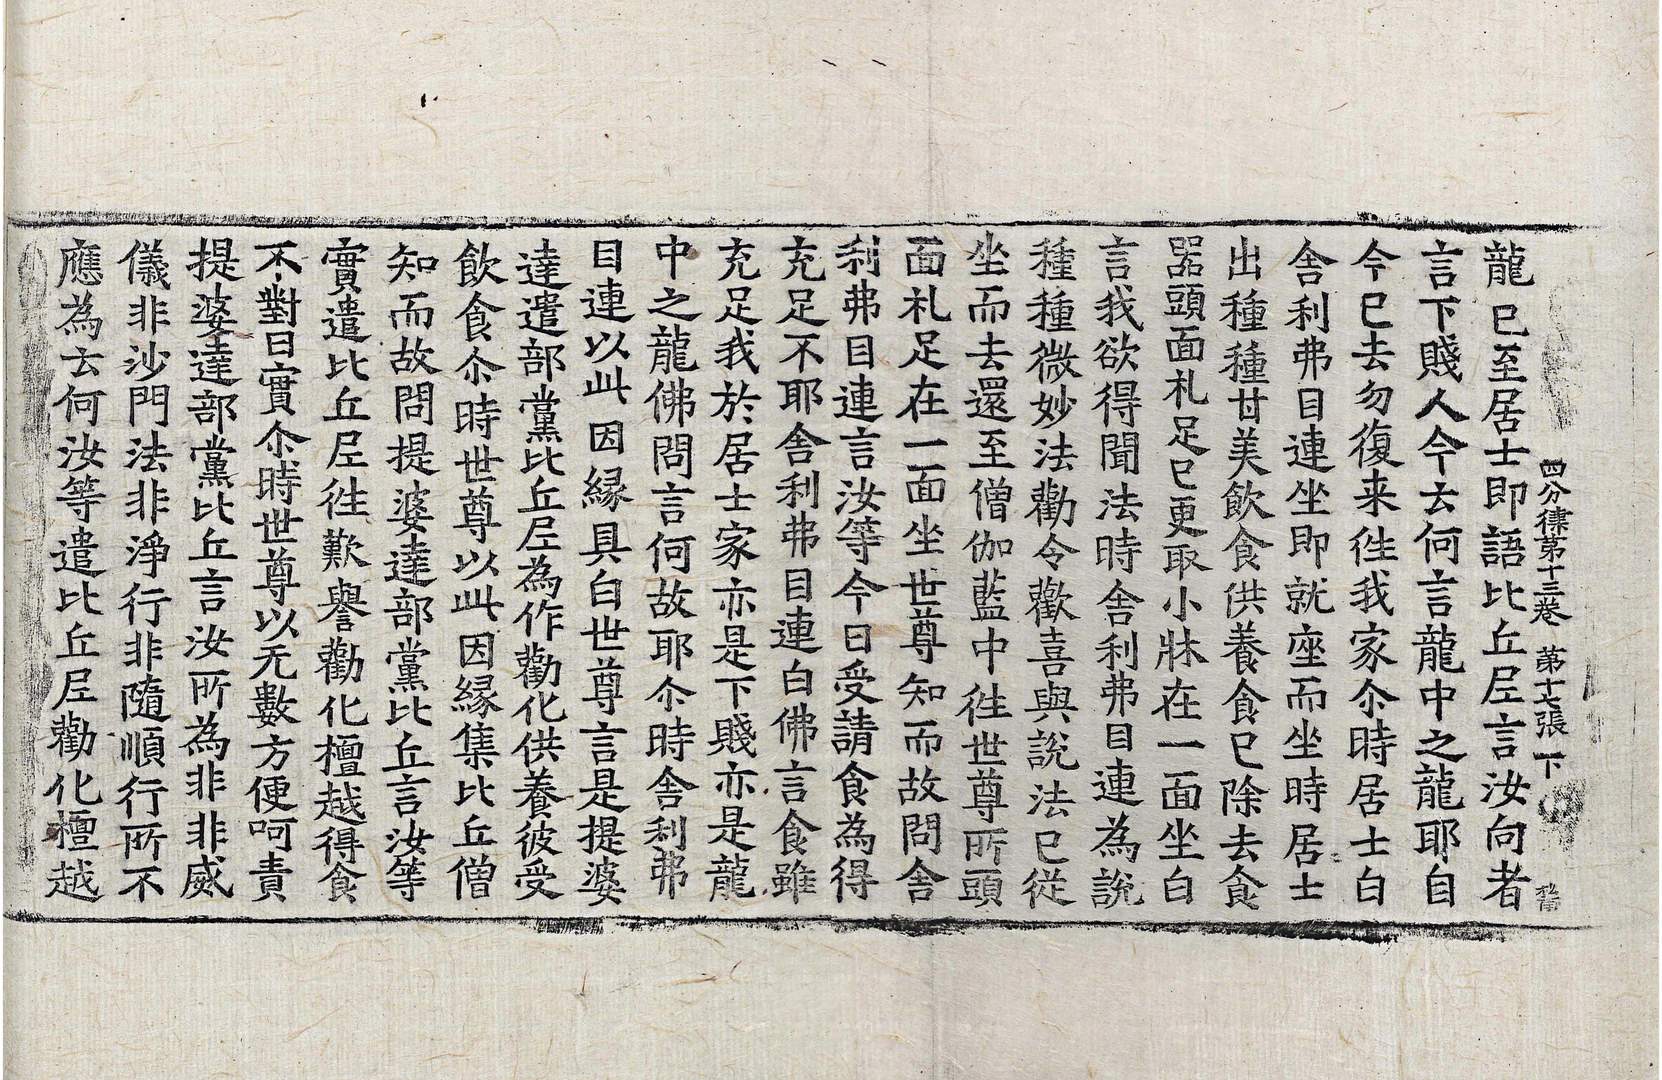 四分律第十三卷 第十七張 下
龍已至居士即語比丘尼言汝向者
言下賤人今云何言龍中之龍耶自
今已去勿復来徃我家尒時居士白
舎利弗目連坐即就座而坐時居士
出種種甘美飲食供養食已除去食
器頭面礼足已更取小牀在一面坐白
言我欲得聞法時舎利弗目連為說
種種微妙法勸令歡喜與說法已從
坐而去還至僧伽藍中徃世尊所頭
面礼足在一面坐世尊知而故問舎
利弗目連言汝等今日受請食為得
充足不耶舎利弗目連白佛言食雖
充足我於居士家亦是下賤亦是龍
中之龍佛問言何故耶尒時舎利弗
目連以此因縁具白世尊言是提婆
達遣部黨比丘尼為作勸化供養彼受
飲食尒時世尊以此因縁集比丘僧
知而故問提婆達部黨比丘言汝等
實遣比丘尼徃歎譽勸化檀越得食
不對曰實尒時世尊以无數方便呵責
提婆達部黨比丘言汝所為非非威
儀非沙門法非淨行非隨順行所不
應為云何汝等遣比丘尼勸化檀越